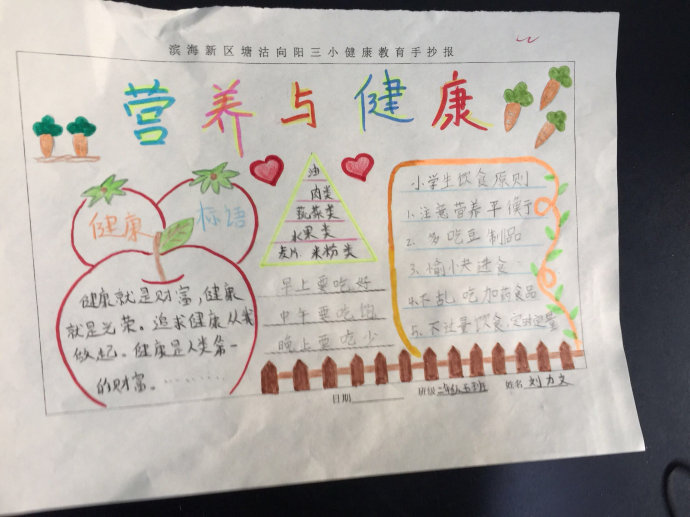 滨海新区塘沽向阳三小健康教育手抄报
营养与健康
健康 标语
健康就是财富,健康
就是光荣。追求健康从我
做起。健康是人类第一
的财富。………
油
肉类
蔬菜类
水果类
麦片、米粉类
早上要吃好
中午要吃饱
晚上要吃少
小学生饮食原则
1.注意营养平衡
2. 多吃豆制品
3.愉快进食
4.不乱吃加药食品
5.不过量饮食,定时定量
日期
班级 二年级五班
姓名 刘力文